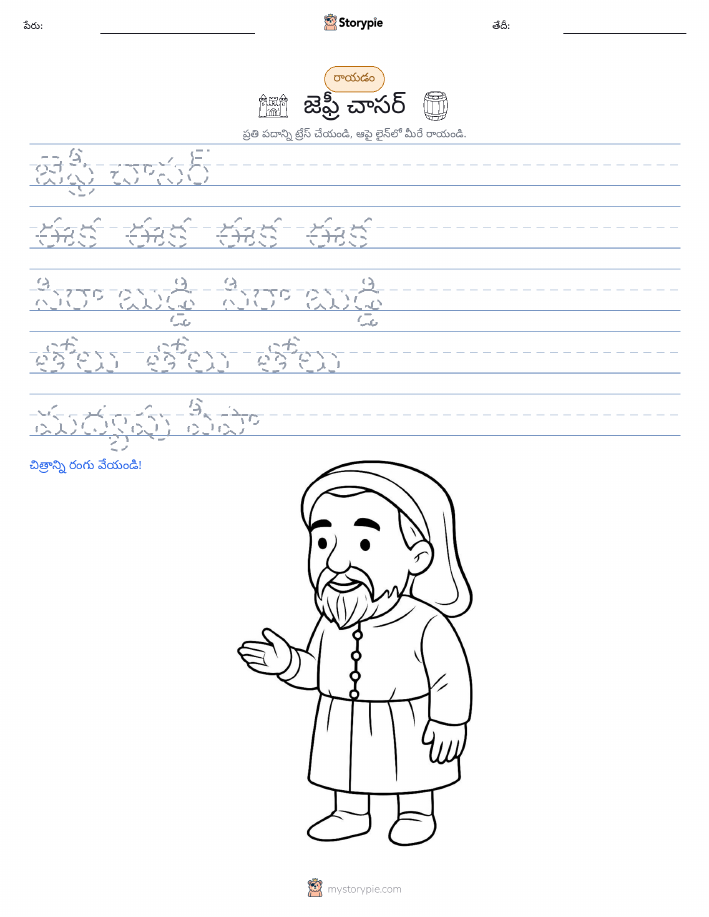 పేరు:
Storypie
తేదీ:
రాయడం
జెఫ్రీ చాసర్
ప్రతి పదాన్ని ట్రేస్ చేయండి, ఆపై లైన్‌లో మీరే రాయండి.
జెఫ్రీ చాసర్
ఈక ఈక ఈక ఈక
సిరా బుడ్డి సిరా బుడ్డి
తోలు తోలు తోలు
మద్యపు పీపా
చిత్రాన్ని రంగు వేయండి!
mystorypie.com